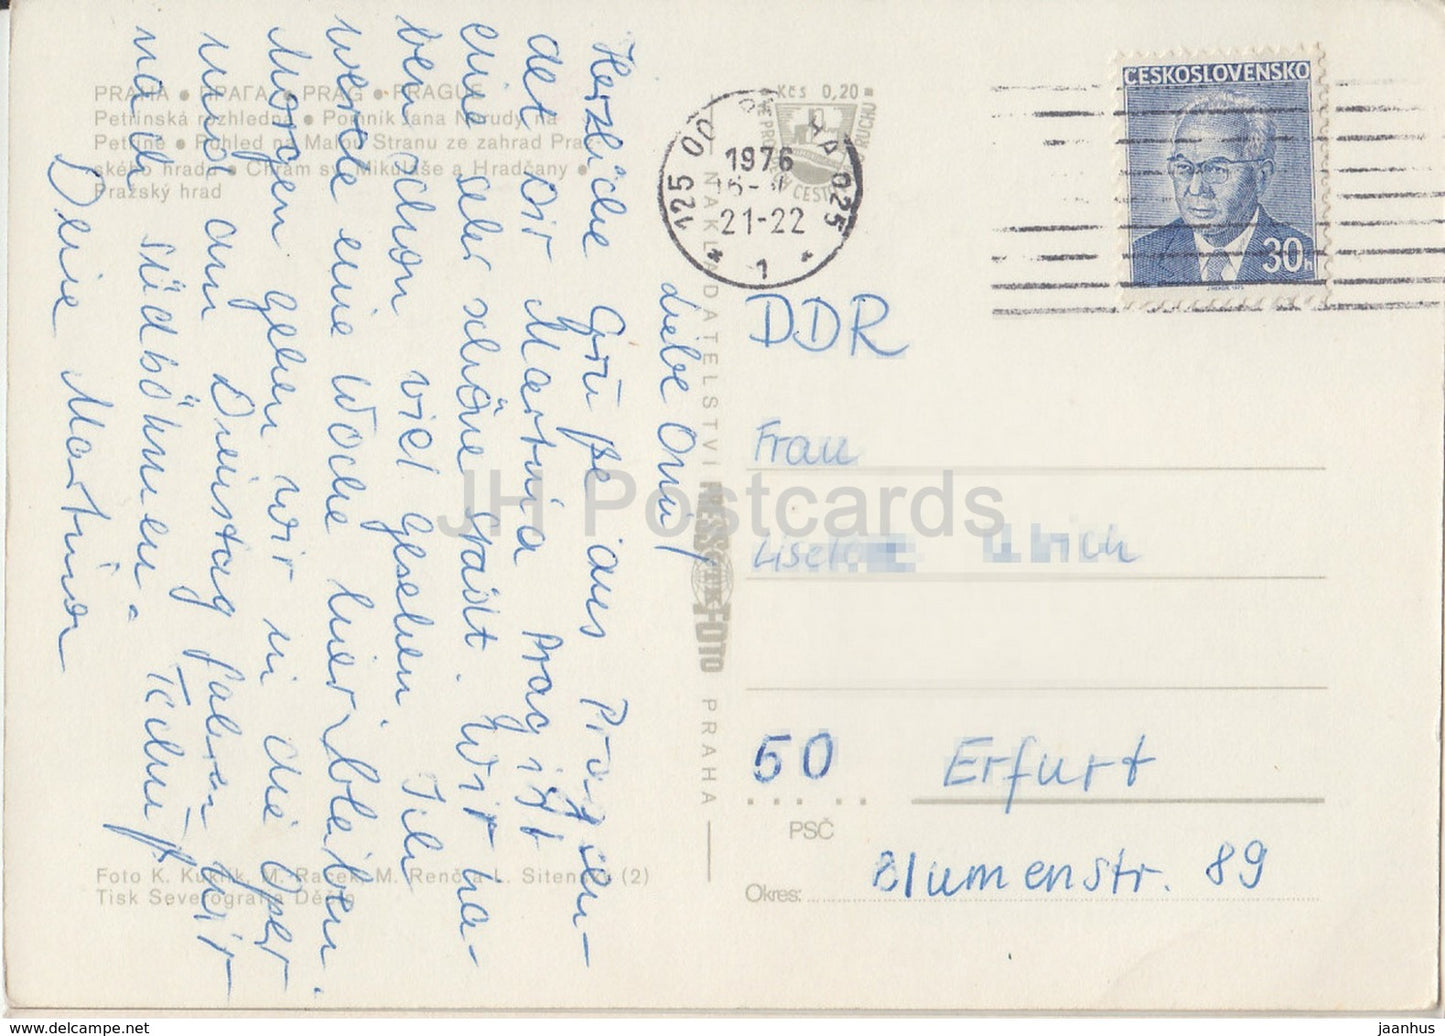 PRAHA • ПРАГА • PRAG • PRAGUE
Petřínská rozhledna • Pomník Jana Nerudy na
Petříně • Pohled na Malou Stranu ze zahrad Praž-
ského hradu • Chrám sv. Mikuláše a Hradčany •
Pražský hrad
Liebe Omi,
Herzliche Grüße aus Prag sen-
det Dir Martina Prag ist
eine sehr schöne Stadt. Wir ha-
ben schon viel gesehen. Ich
werde eine Woche hier bleiben.
Morgen gehen wir in die Oper
und am Dienstag fahren wir
nach Südböhmen.
Deine Martina
Foto K. Kuklík, M. Raček, M. Renč a L. Sitenský (2)
Tisk Severografia Děčín
NAKLADATELSTVÍ PRESSFOTO PRAHA
Kčs 0,20
1976
21-22
1
125
025
ČESKOSLOVENSKO
30h
DDR
Frau
50 Erfurt
PSČ
Blumenstr. 89
Okres:
JH Postcards
www.delcampe.net
jaanhus